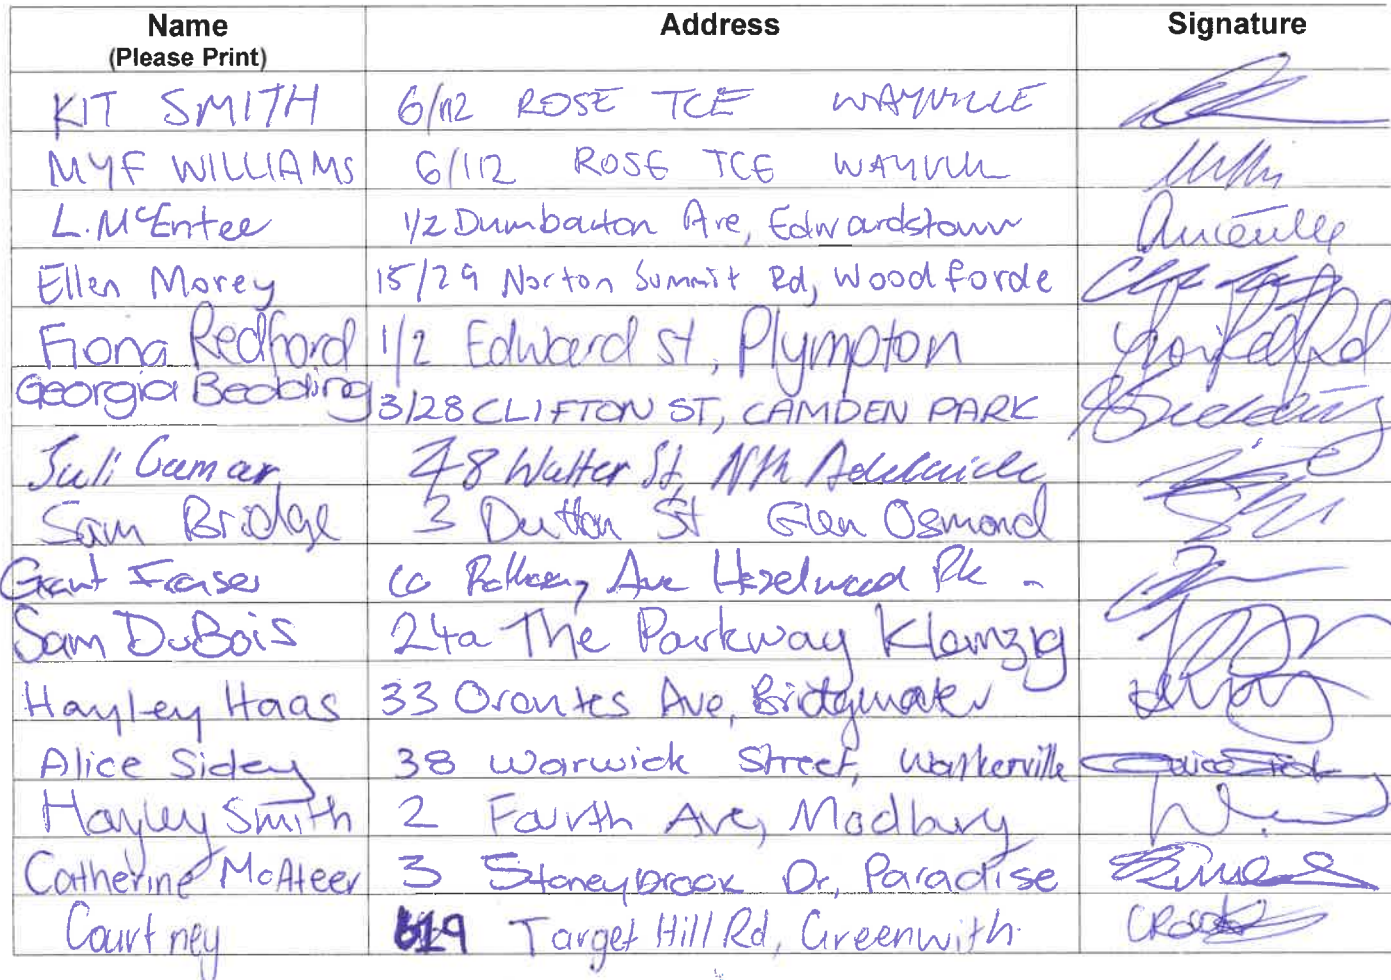 Name Address Signature
(Please Print)
KIT SMITH 6/112 ROSE TCE WAYVILLE
MYF WILLIAMS 6/112 ROSE TCE WAYVILL
L. McEntee 1/2 Dumbarton Ave, Edwardstown
Ellen Morey 15/29 Norton Summit Rd, Woodforde
Fiona Redford 1/2 Edward St, Plympton
Georgia Bedding 3/28 CLIFTON ST, CAMDEN PARK
Juli 48 Walter St, Nth Adelaide
Sam Bridge 3 Dutton St Glen Osmond
Grant Fraser Ave Hazelwood Pk
Sam DuBois 24a The Parkway Klemzig
Hayley Haas 33 Orontes Ave, Bridgewater
Alice Sidey 38 Warwick Street, Walkerville
Hayley Smith 2 Fourth Ave, Modbury
Catherine McAteer 3 Stoneybrook Dr, Paradise
Courtney 619 Target Hill Rd, Greenwith